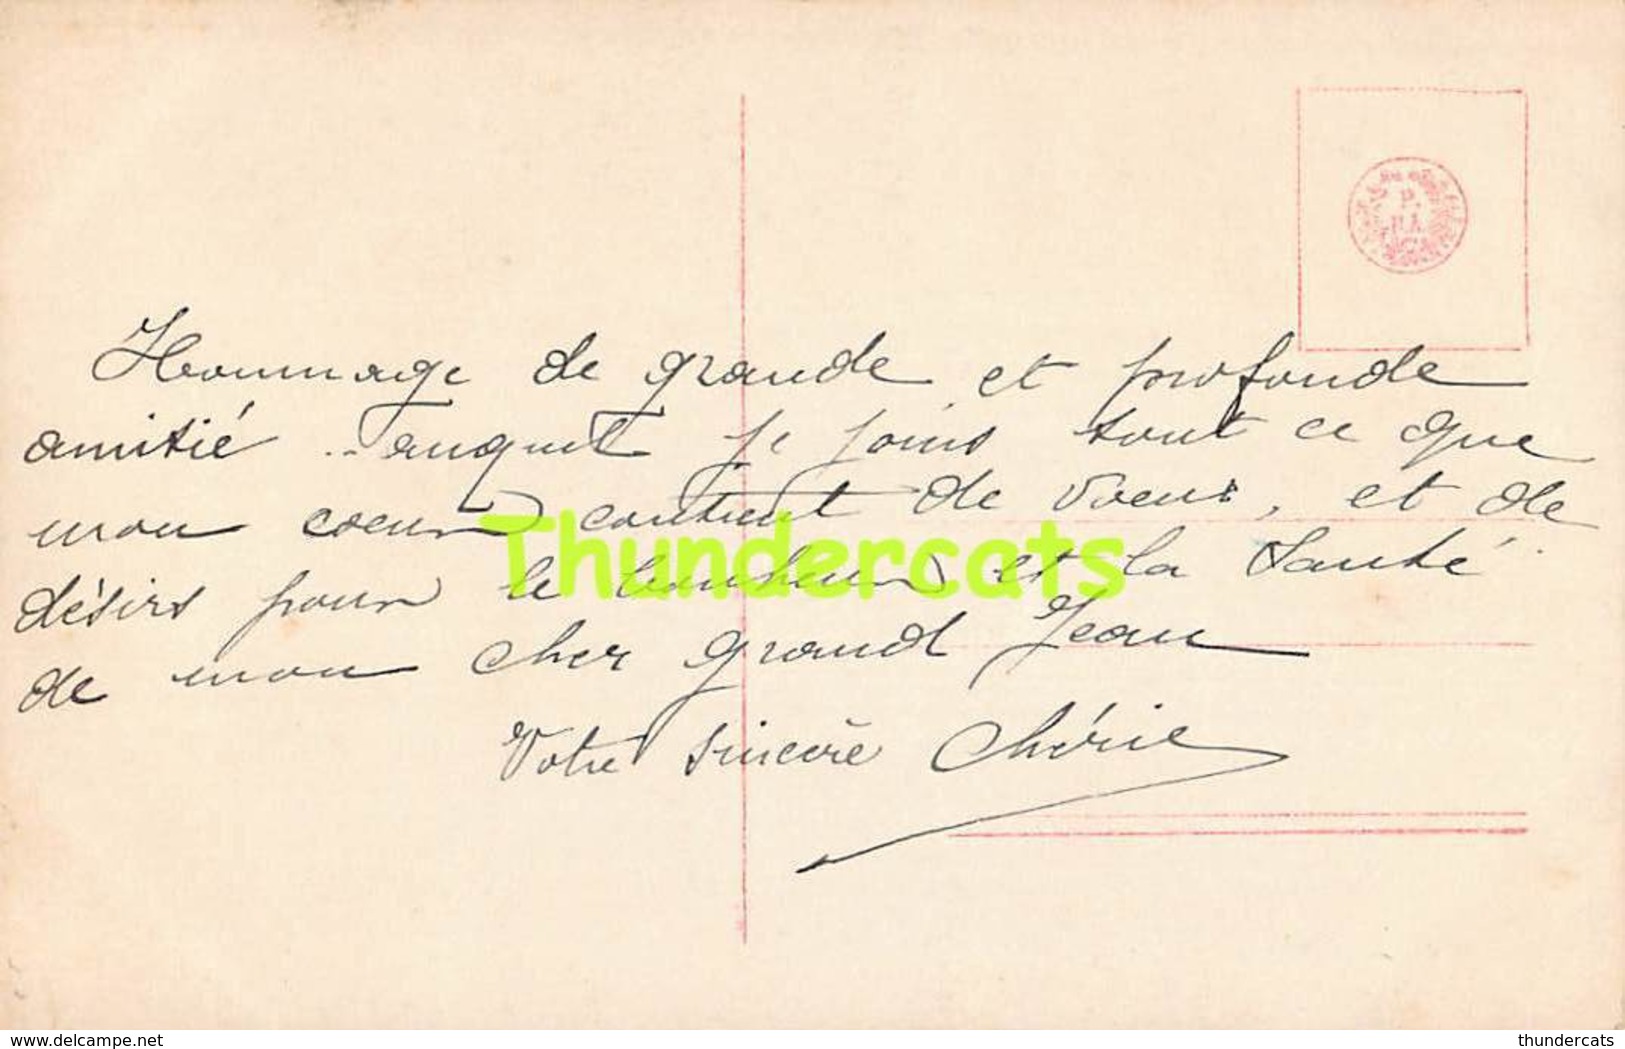 P.
Hommage de grande et profonde
amitié auquel je joins tout ce que
mon coeur contient de voeux, et de
désirs pour le bonheur et la Santé
de mon cher grand Jean
Votre sincère Chérie
Thundercats
www.delcampe.net
thundercats